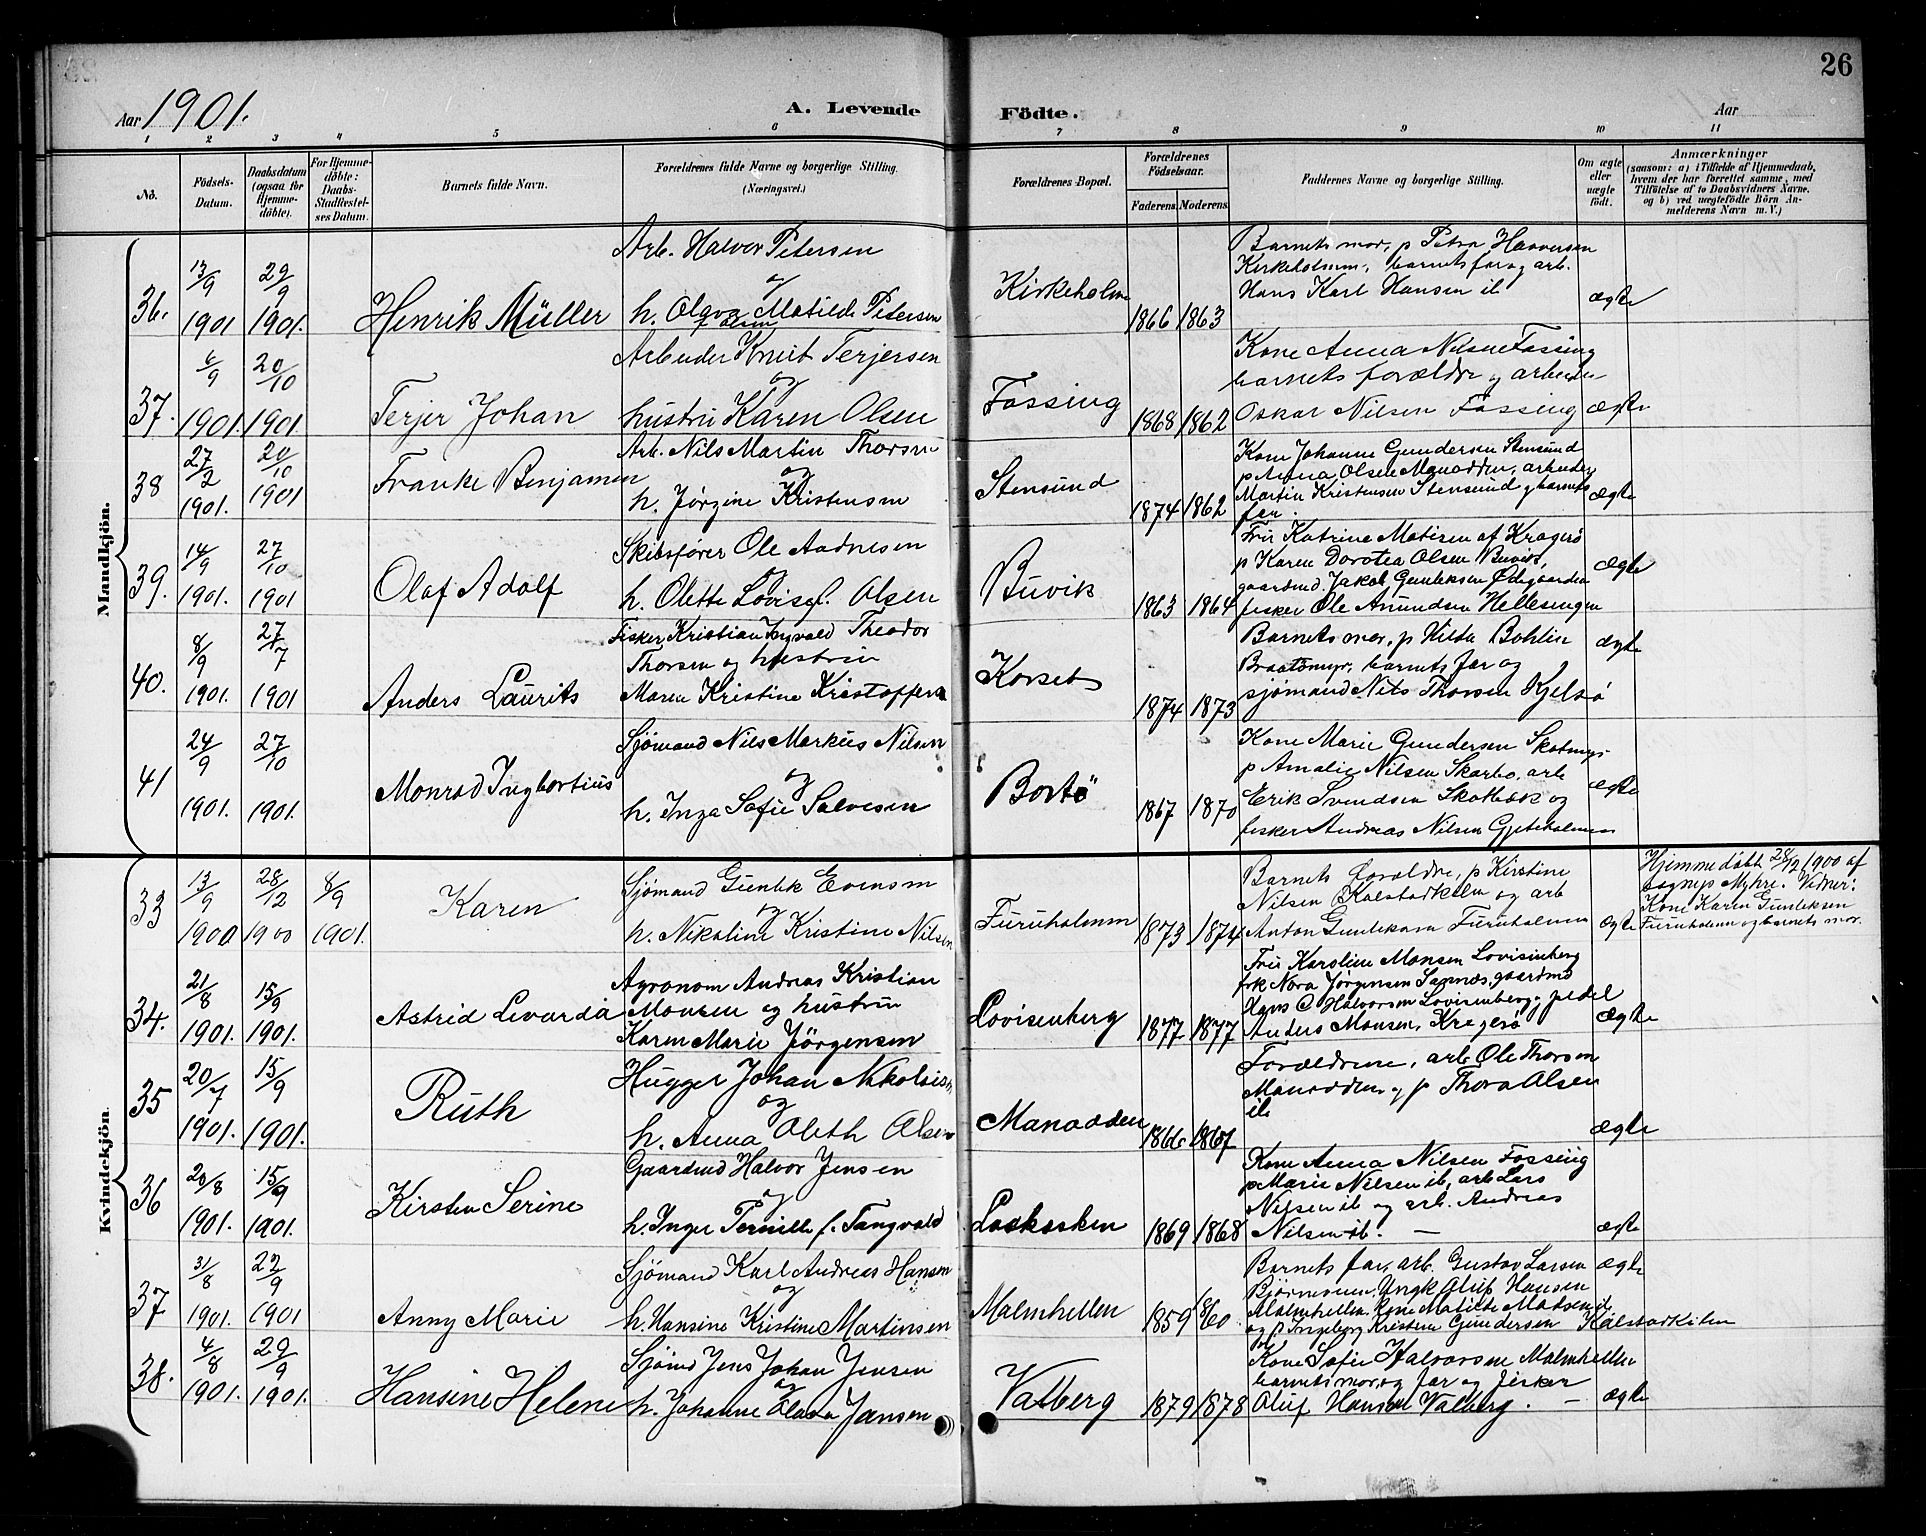 26
Aar 1901.
A. Levende
Födte.
Aar
1 2 3 4 5 6 7 8 9 10 11
No.
Födsels-Datum.
Daabsdatum (ogsaa for Hjemme-döbte).
For Hjemme-döbte: Daabs-Stadfæstel-ses Datum.
Barnets fulde Navn.
Forældrenes fulde Navne og borgerlige Stilling.
(Næringsvei.)
Forældrenes Bopæl.
Forældrenes Födselsaar.
Faderens. Moderens.
Faddernes Navne og borgerlige Stilling.
Om ægte eller uægte født.
Anmærkninger
(saasom: a) i Tilfælde af Hjemmedaab,
hvem der har forrettet samme, med
Tilföielse af to Daabsvidners Navne,
og b) ved uægtefödte Börn An-
melderens Navn m. V.)
Mandkjön.
36. 13/9 1901 29/9 1901. Henrik Müller
Arb. Halvor Petersen
og
h. Olava Matilde Petersen
f. Olsen
Kirkeholm 1866 1863
Barnets mor, p Petra Halversen
Kirkeholmen, barnets far og arb.
Hans Karl Hansen ib ægte
37. 6/9 1901. 20/10 1901. Terjer Johan
Arbeider Knut Terjersen
og
hustru Karen Olsen
Fossing 1868 1862
Kone Anna Nilsen Fossing
barnets forældre og arbeider
Oskar Nilsen Fossing ægte
38 27/2 1901. 20/10 1901 Franke Benjamen
Arb. Nils Martin Thorsen
og
h. Jørgine Kristensen
Stensund 1874 1862
Kone Johanne Gundersen Stensund
p Anna Olsen Manodden, arbeider
Martin Kristensen Stensund og barnets
far. ægte
39. 14/9 1901. 27/10 1901 Olaf Adolf
Skibsfører Ole Aadnesen
og
h. Olette Lovise f. Olsen
Buvik 1863 1864
Fru Katrine Matisen af Kragerø
p Karen Dorotea Olsen Buvik,
gaardmd. Jakob Gunleksen Ødegaarden
fisker Ole Amundsen Hellesengen
ægte
40. 8/9 1901. 27/7 1901 Anders Laurits
Fisker Kristian Ingvald Theodor
Thorsen og hustru
Maren Kristine Kristoffersen
Korset 1874 1873
Barnets mor, p Hilda Bohlin
Braatömyr, barnets far og
sjømand Nils Thorsen Kjelsø
ægte
41 24/9 1901. 27/10 1901. Monrad Ingbortius
Sjømand Nils Markus Nilsen
og
h. Inga Sofie Salvesen
Bortö 1867 1870
Kone Marie Gundersen Skotmyr
p Amalie Nilsen Skarbo, arb
Erik Svendsen Skotbæk og
fisker Andreas Nilsen Gjeteholmen
ægte
Kvindekjön.
33 13/9 1900 28/12 1900 8/9 1901. Karen
Sjømand Gunlek Evensen
og
h. Nikoline Kristine Nilsen
Furuholmen 1873 1874
Barnets forældre, p Kirstine
Nilsen Kalstadkilen og arb
Anton Gunleksen Furuholmen
ægte
Hjemmedøbt 28/12 1900 af
sognep Myhre. Vidner:
Kone Karen Gunleksen
Furuholmen og barnets mor.
34. 21/8 1901. 15/9 1901. Astrid Levarda
Agronom Andreas Kristian
Monsen og hustru
Karen Marie Jörgensen
Lovisenberg 1877 1877
Fru Karoline Monsen Lovisenberg
frk Nora Jørgensen Sannes, gaardmd
Hans C Halvorsen Lovisenberg, pedel
Anders Monsen, Kragerø
ægte
35 20/7 1901. 15/9 1901. Ruth
Hugger Johan Nikolaisen
og
h. Anna Oleth Olsen
Manodden 1866 1867
Forældrene, arb Ole Thorsen
Manodden og p Thora Olsen
ib
ægte
36 20/8 1901. 15/9 1901. Kirsten Serine
Gaardmd Halvor Jensen
og
h. Inger Pernille f. Tangvald
Laskasken 1869 1868
Kone Anna Nilsen Fossing
p Marie Nilsen ib, arb Lars
Nilsen ib og arb. Andreas
Nilsen ib. —
ægte
37 31/8 1901. 22/9 1901 Anny Marie
Sjömand Karl Andreas Hansen
og
h. Hansine Kristine Martinsen
Malmhellen 1859 1860
Barnets far, arb. Gustav Larsen
Bjørneveien. Ungk Oluf Hansen
Malmhellen. Kone Matilde Madsen ib
og p Ingeborg Kristine Gundersen Kalstadkilen
ægte
38. 4/8 1901. 29/9 1901. Hansine Helene
Sjömd Jens Johan Jensen
og
h. Johanne Olava Jansen
Valberg 1879 1878
Kone Sofie Halvorsen Malmhellen
barnets mor og far og fisker
Oluf Hansen Valberg. —
ægte